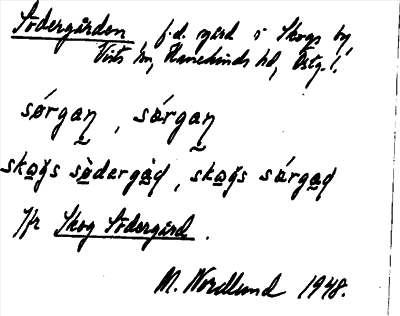 Södergården, f.d. gård i Skogs by
Vists sn, Hanekinds hd, Östg. l.
sørgaṇ, sørgaṇ
skogs södergåd, skogs sørgad
Jfr Skog Södergård.
M. Nordlund 1948.